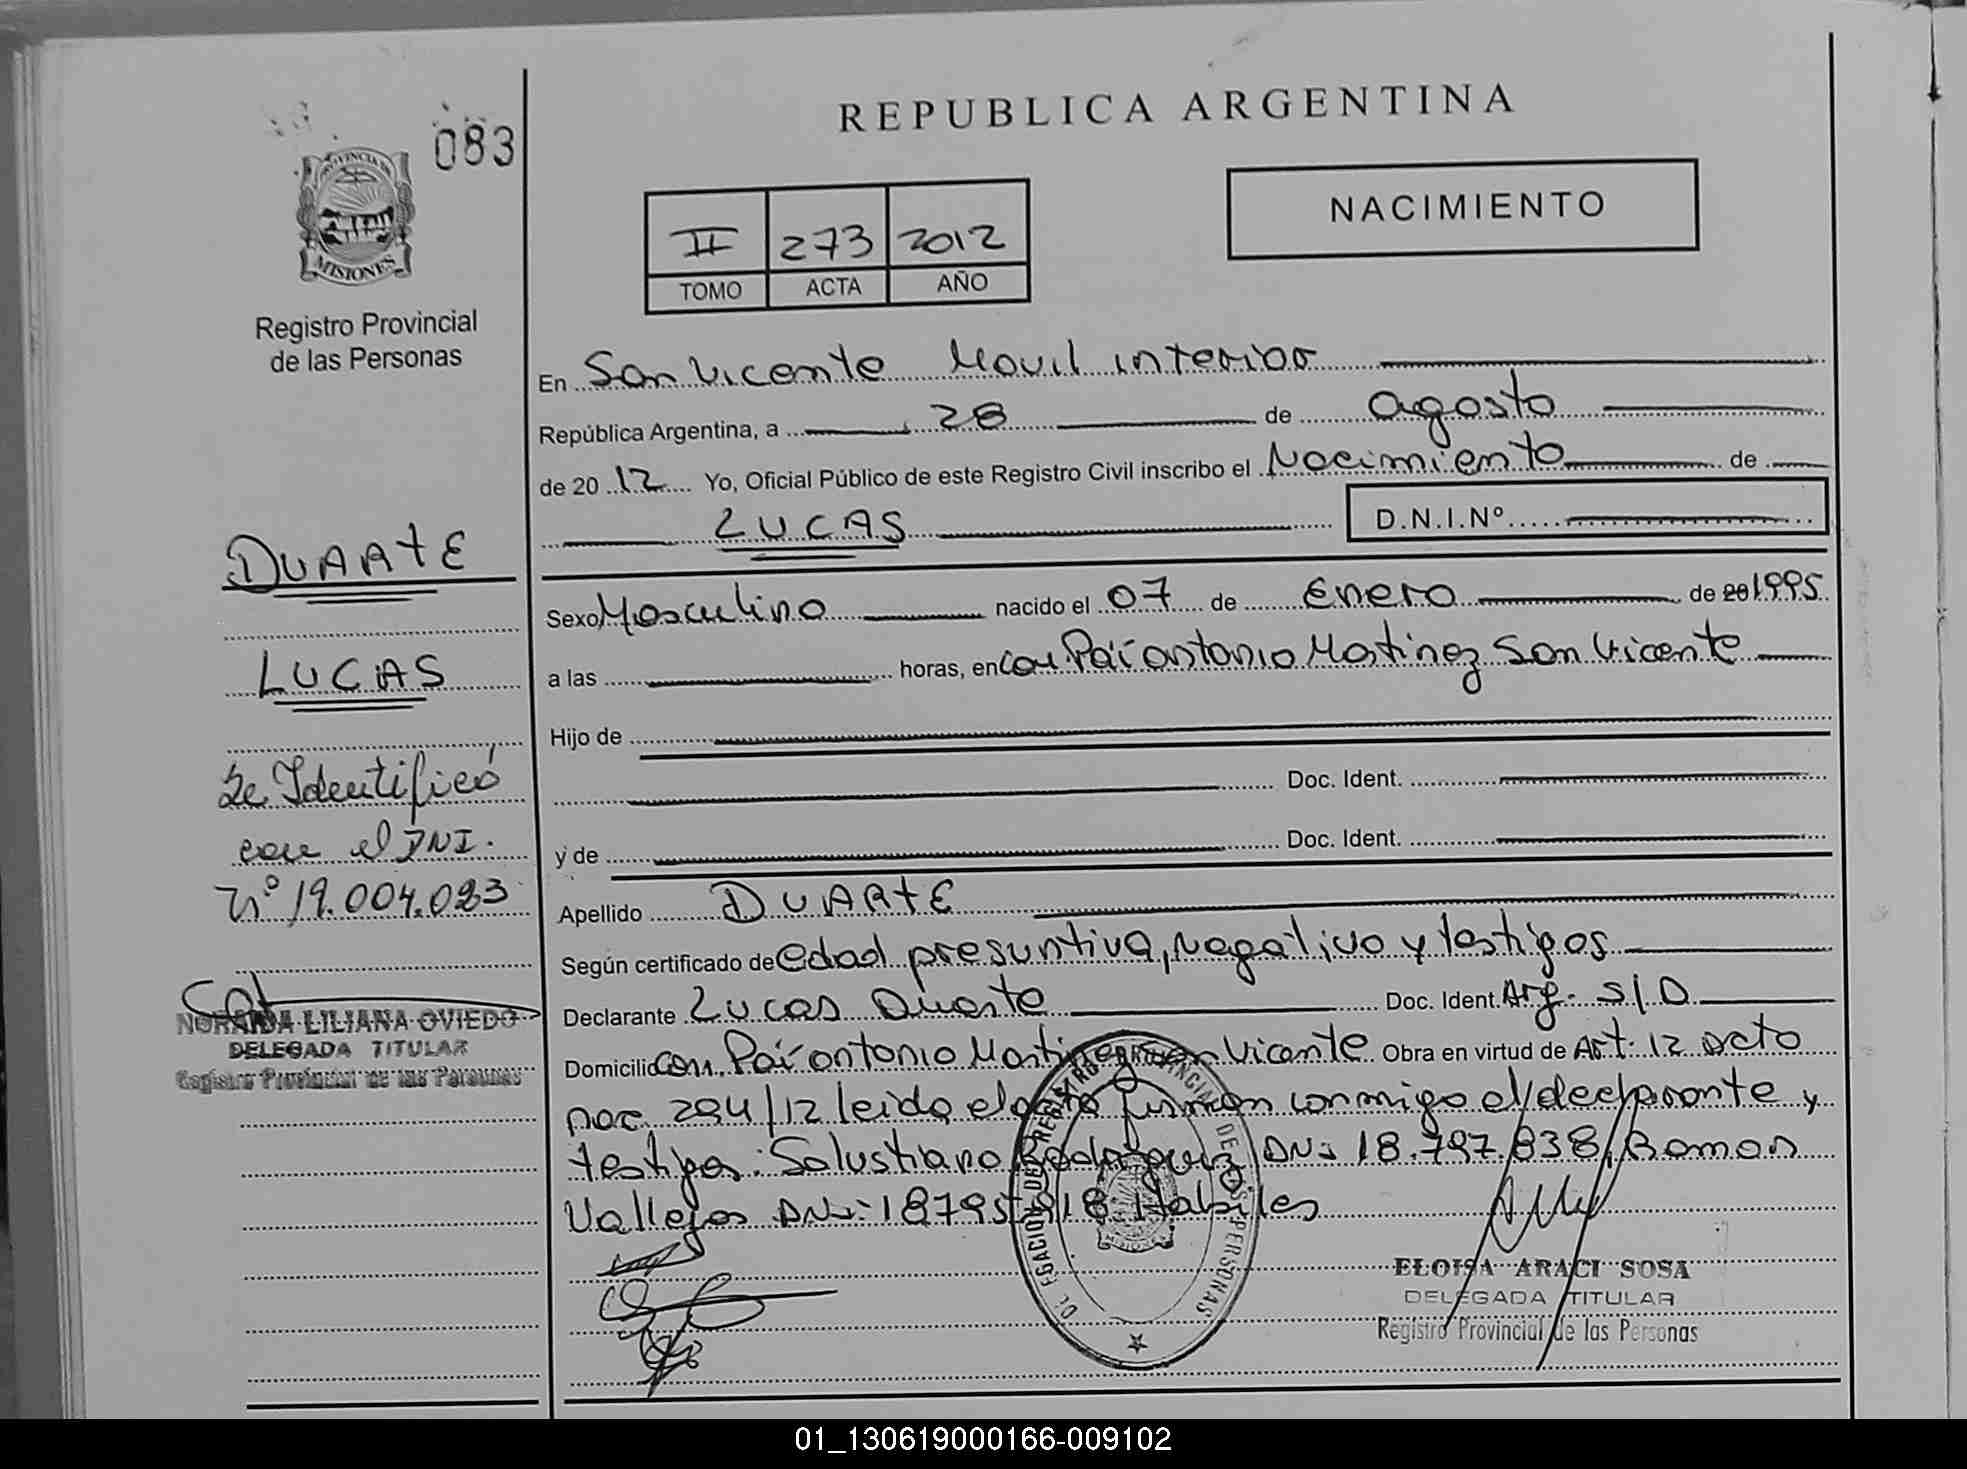 083
PROVINCIA DE
MISIONES
Registro Provincial
de las Personas
DUARTE
LUCAS
Se Identificó
con el DNI.
Nº 19.004.083
NORAIDA LILIANA OVIEDO
DELEGADA TITULAR
Registro Provincial de las Personas
REPUBLICA ARGENTINA
NACIMIENTO
II 273 2012
TOMO ACTA AÑO
En San Vicente Movil interior
República Argentina, a 28 de agosto
de 2012 Yo, Oficial Público de este Registro Civil inscribo el Nacimiento de
LUCAS D.N.I.Nº
Sexo Masculino nacido el 07 de Enero de 20 1995
a las horas, en Com. Pai antonio Martinez San Vicente
Hijo de
Doc. Ident.
y de Doc. Ident.
Apellido DUARTE
Según certificado de edad presuntiva, negativo y testigos
Declarante Lucas Duarte Doc. Ident. Arg. S/D
Domicilio Com. Pai antonio Martinez San Vicente Obra en virtud de Art. 12 Dcto
nac. 294/12 leida el acta firman conmigo el declarante y
testigos: Salustiano Rodriguez DNI 18.797.838, Ramon
Vallejos DNI: 18795918 Habiles
ELOISA ARACI SOSA
DELEGADA TITULAR
Registro Provincial de las Personas
01_130619000166-009102